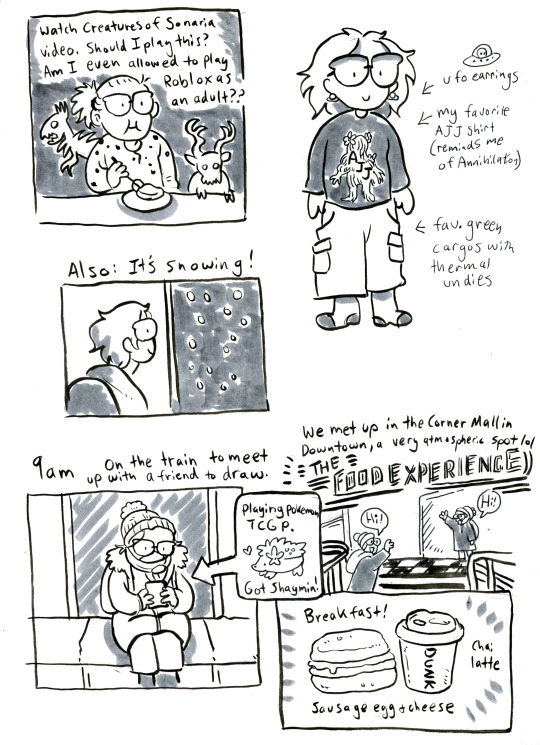 Watch Creatures of Sonaria
video. Should I play this?
Am I even allowed to play
Roblox as
an adult??
ufo earrings
my favorite
AJJ shirt
(reminds me
of Annihilation)
AJJ
fav. green
cargos with
thermal
undies
Also: It's snowing!
9am
On the train to meet
up with a friend to draw.
Playing Pokemon
TCG P.
Got Shaymin!
We met up in the Corner Mall in
Downtown, a very atmospheric spot lol
THE
FOOD EXPERIENCE
Hi!
Hi!
Breakfast!
DUNK
Chai
latte
Sausage egg + cheese